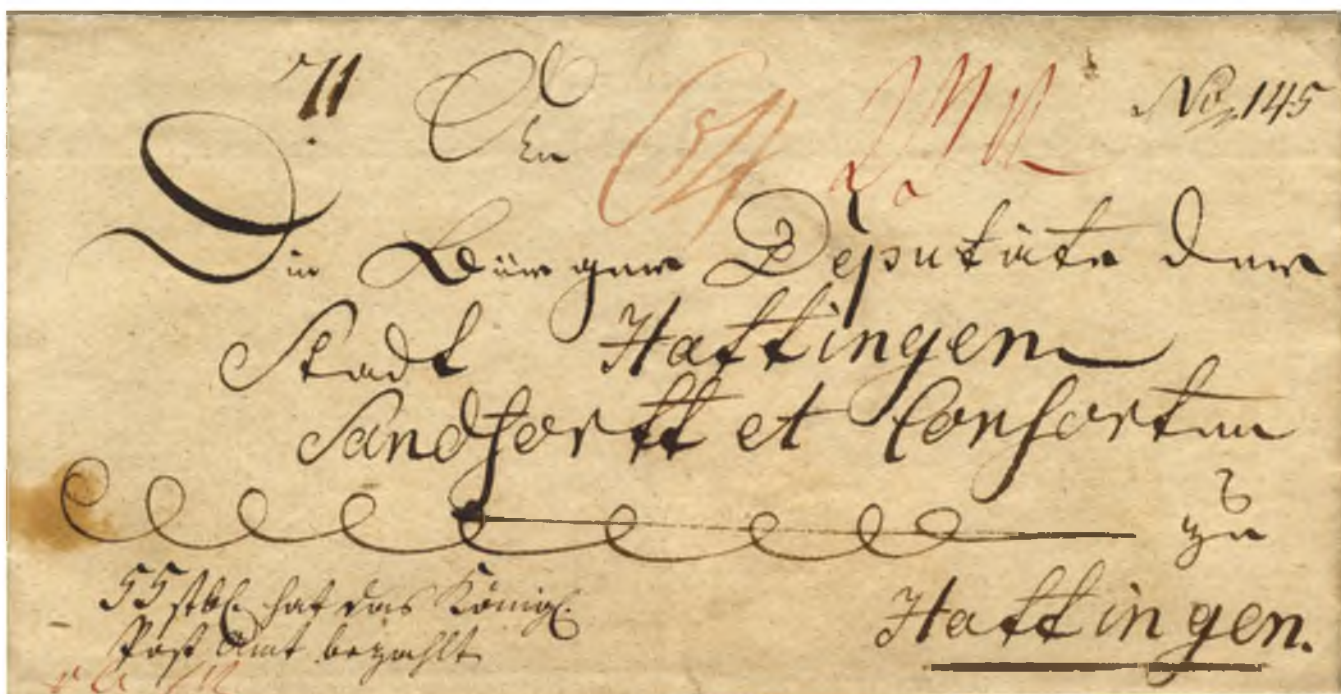 An No 145
Die Bürger Deputirte der
Stadt Hattingen
Sandfortt et Consorten
zu
Hattingen.
55 stbr. hat das Königl.
Post Amt bezahlt